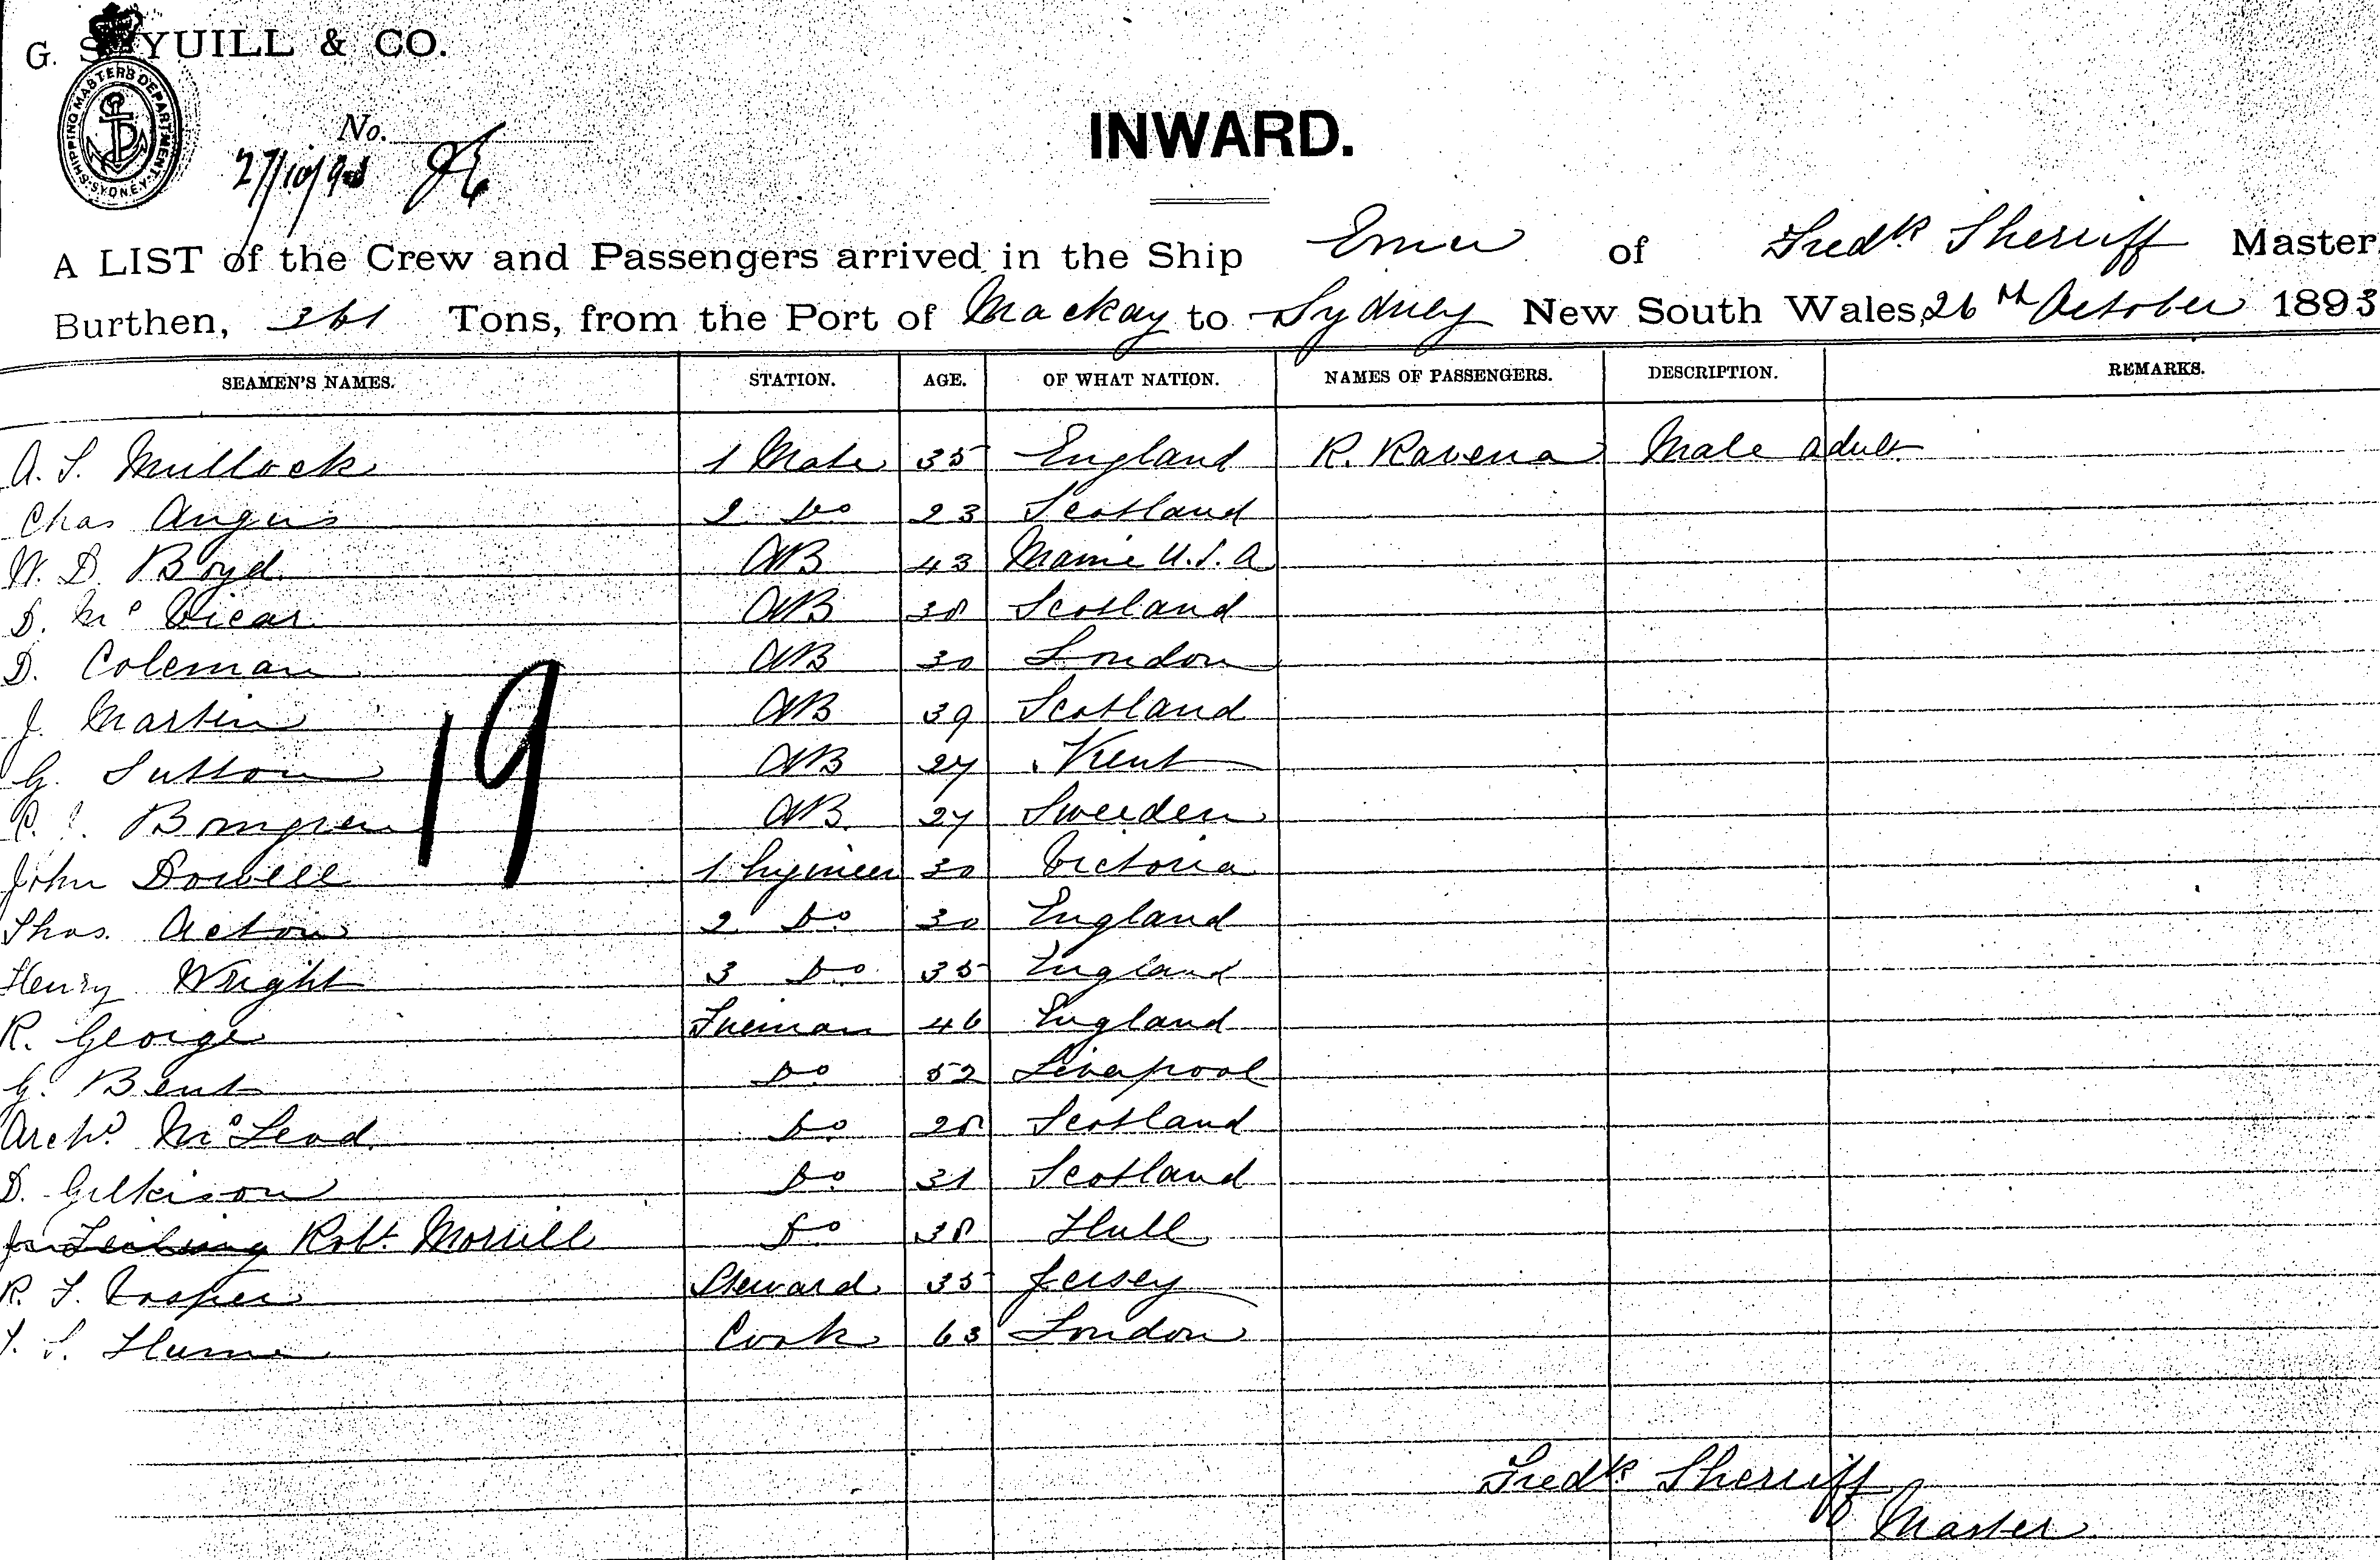 G. S. YUILL & CO.
SHIPPING MASTERS DEPARTMENT SYDNEY
No.
27/10/93
INWARD.
A LIST of the Crew and Passengers arrived in the Ship Emu of Fredk Sherriff Master
Burthen, 361 Tons, from the Port of Mackay to Sydney New South Wales, 26th October 1893
SEAMEN'S NAMES. STATION. AGE. OF WHAT NATION. NAMES OF PASSENGERS. DESCRIPTION. REMARKS.
A. S. Mullock 1 Mate 35 England R. Ravena Male adult
Chas Angus 2 Do 23 Scotland
W. D. Boyd AB 43 Maine U.S.A
D. Mc Vicar AB 38 Scotland
D. Coleman AB 30 London
J. Martin AB 39 Scotland
G. Sutton AB 27 Kent
Bomgren AB 27 Sweeden
19
John Dowell 1 Engineer 30 Victoria
Thos. Acton 2 Do 30 England
Henry Wright 3 Do 35 England
R. George Fireman 46 England
G. Bent Do 52 Liverpool
Archd McLeod Do 28 Scotland
D. Gilkison Do 31 Scotland
Robt Morrill Do 38 Hull
R. F. Vosper Steward 35 Jersey
S. Hume Cook 63 London
Fredk Sherriff
Master